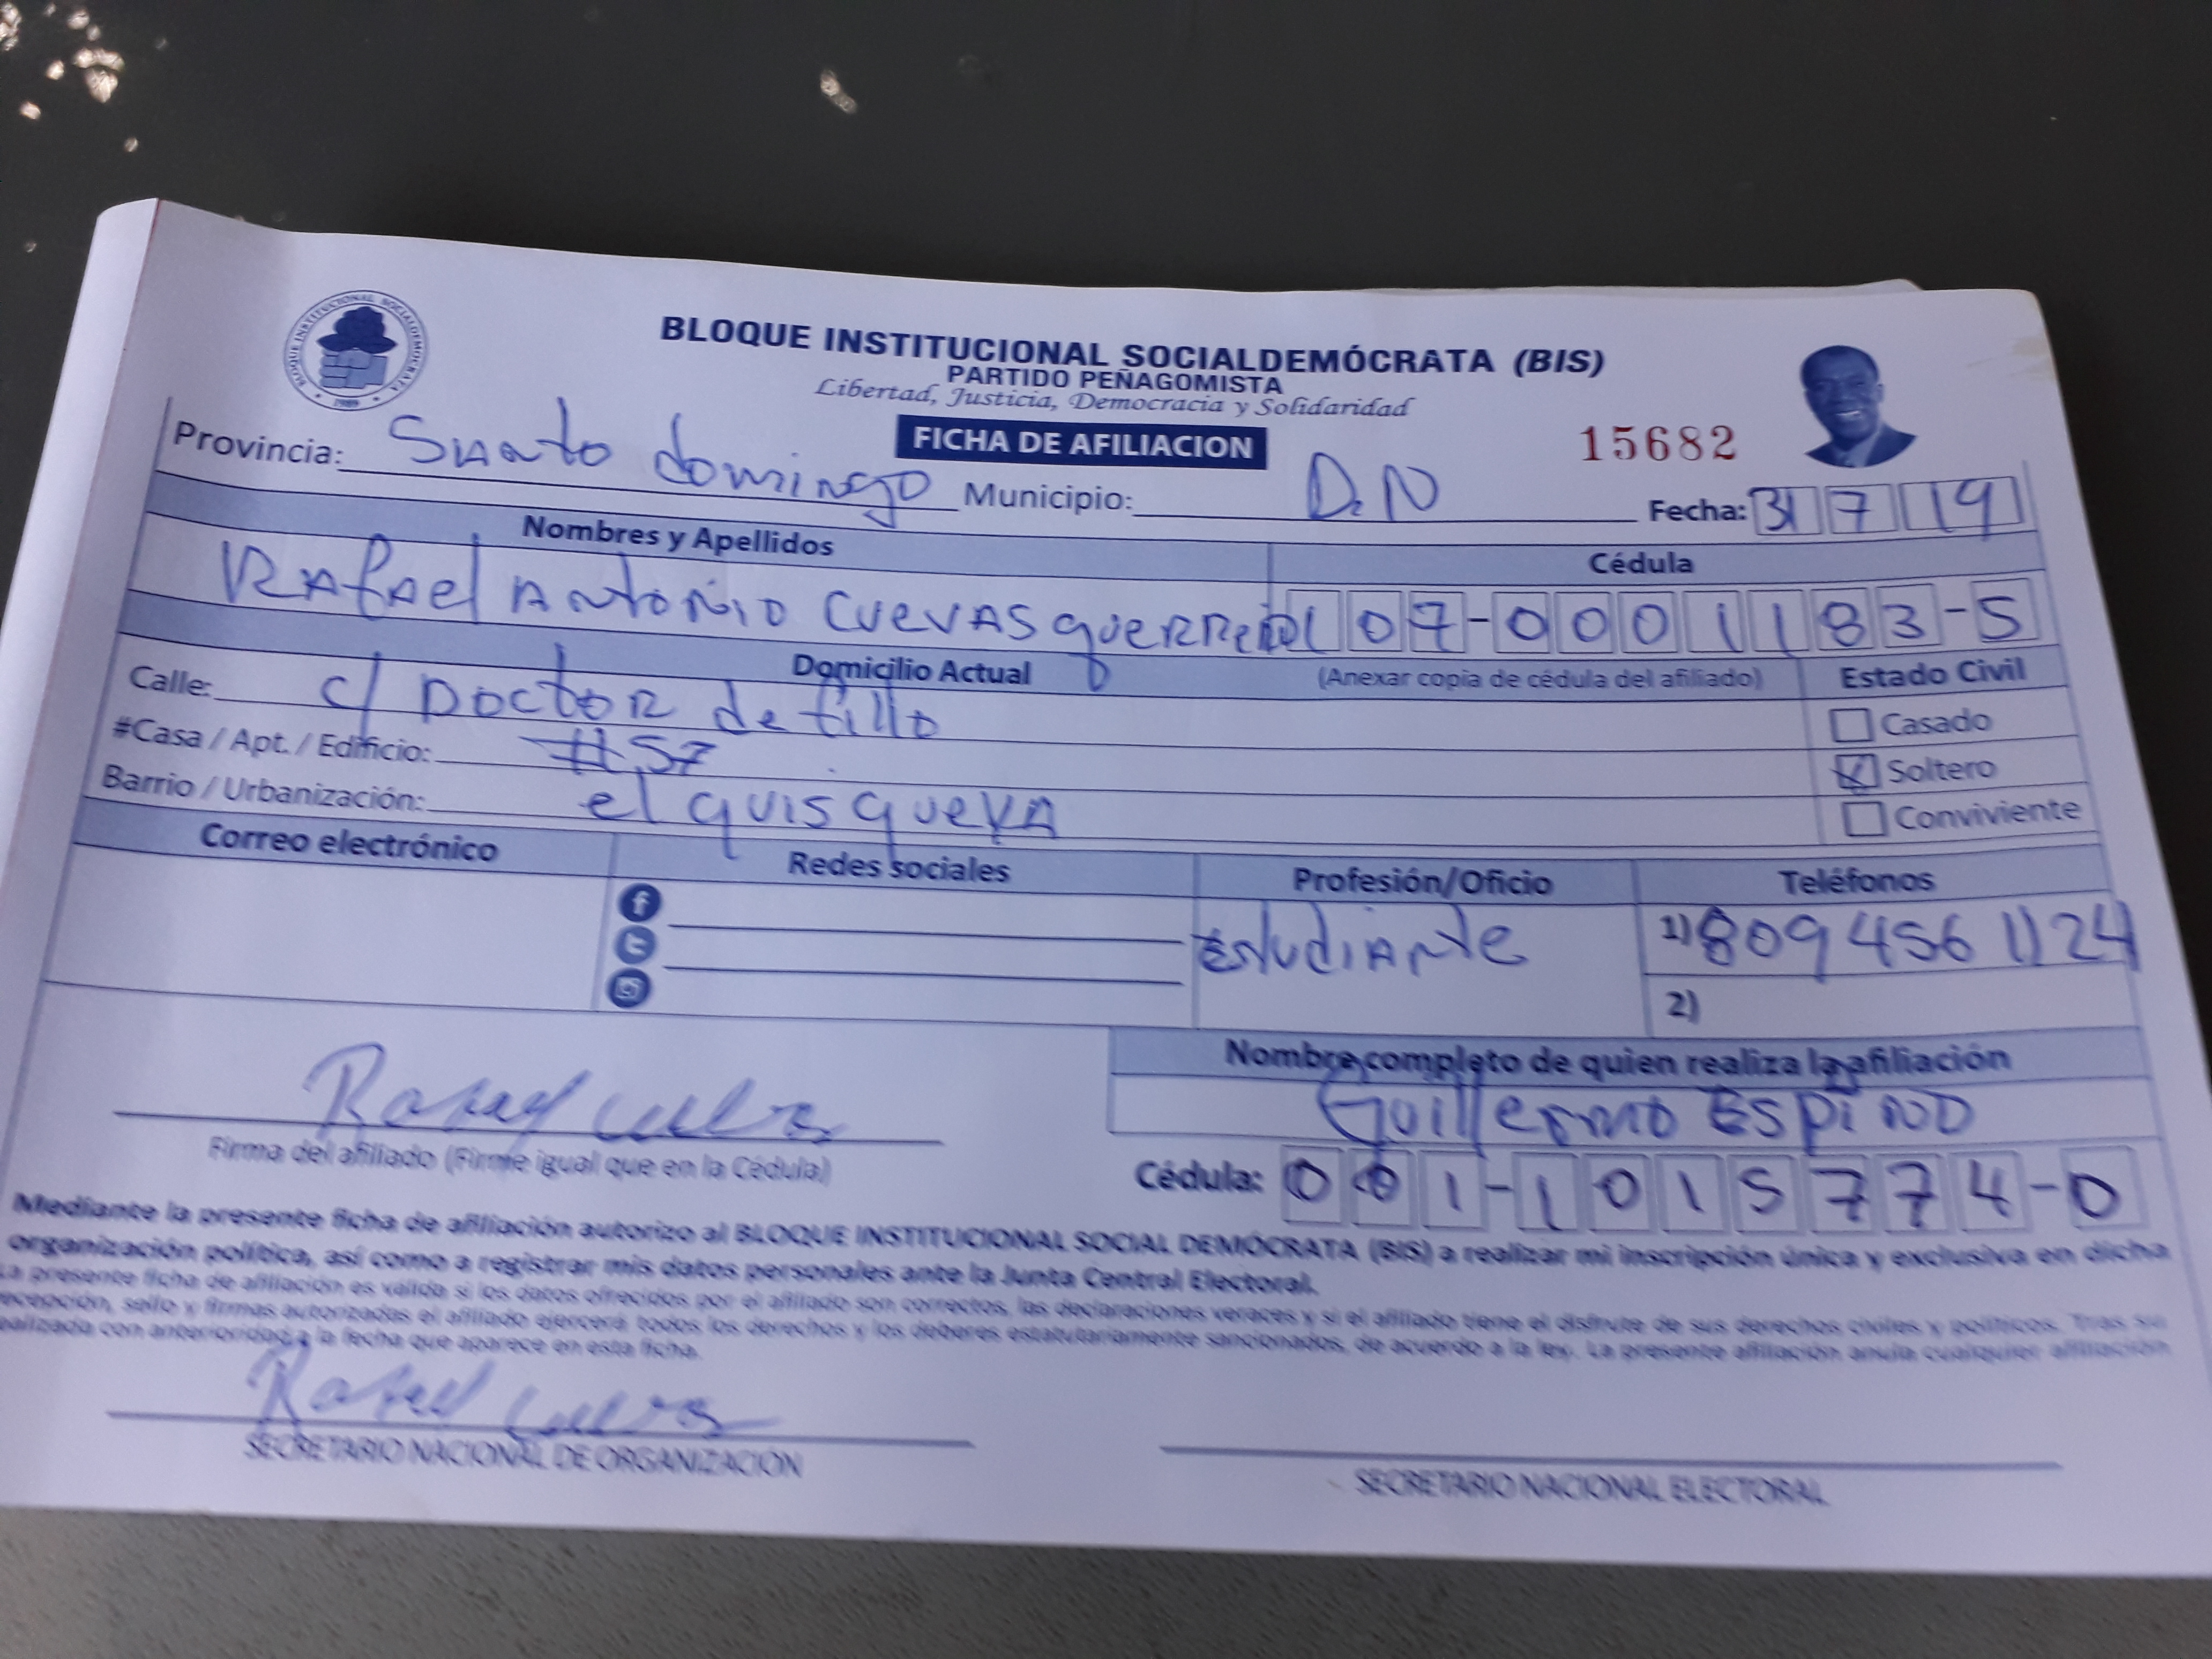 BLOQUE INSTITUCIONAL SOCIALDEMÓCRATA
1989
BLOQUE INSTITUCIONAL SOCIALDEMÓCRATA (BIS)
PARTIDO PEÑAGOMISTA
Libertad, Justicia, Democracia y Solidaridad
FICHA DE AFILIACION
15682
Provincia: Santo domingo Municipio: D.N Fecha: 31 7 19
Nombres y Apellidos Cédula
RAfAel ANtoNio CUeVAS guerrero 07-0001183-5
Domicilio Actual (Anexar copia de cédula del afiliado) Estado Civil
Calle: c/ DOCtOR defillo
Casado
#Casa / Apt. / Edificio: #57
Soltero
Barrio / Urbanización: el quisqueya
Conviviente
Correo electrónico Redes sociales Profesión/Oficio Teléfonos
Estudiante 1) 809 456 1124
2)
Nombre completo de quien realiza la afiliación
Guillermo Espino
Rafael Cuevas
Firma del afiliado (Firme igual que en la Cédula)
Cédula: 001-1015774-0
Mediante la presente ficha de afiliación autorizo al BLOQUE INSTITUCIONAL SOCIAL DEMÓCRATA (BIS) a realizar mi inscripción única y exclusiva en dicha
organización política, así como a registrar mis datos personales ante la Junta Central Electoral.
La presente ficha de afiliación es válida si los datos ofrecidos por el afiliado son correctos, las declaraciones veraces y si el afiliado tiene el disfrute de sus derechos civiles y políticos. Tras su
recepción, sello y firmas autorizadas el afiliado ejercerá todos los derechos y los deberes estatutariamente sancionados, de acuerdo a la ley. La presente afiliación anula cualquier afiliación
realizada con anterioridad a la fecha que aparece en esta ficha.
Rafael Cuevas
SECRETARIO NACIONAL DE ORGANIZACIÓN
SECRETARIO NACIONAL ELECTORAL